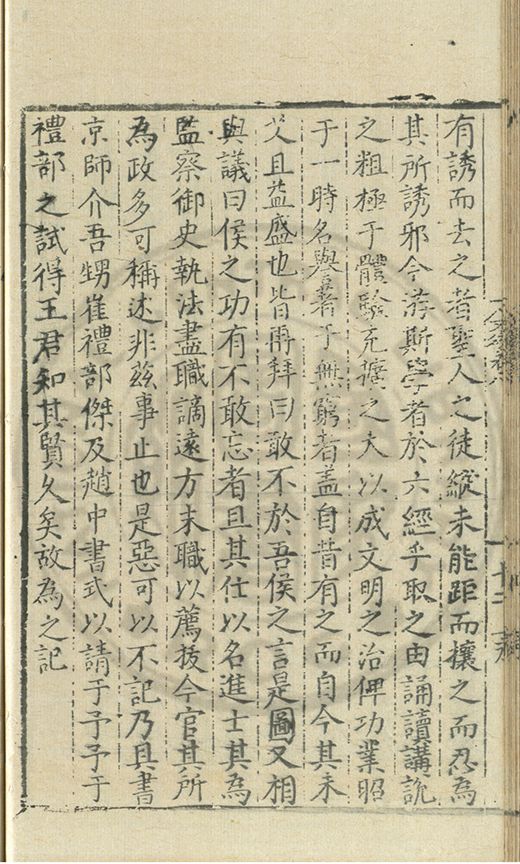 有誘而去之者聖人之徒縱未能距而攘之而忍為
其所誘邪今游斯學者於六經乎取之由誦讀講說
之粗極于體驗充擴之大以成文明之治俾功業昭
于一時名譽著于無窮者盖自昔有之而自今其未
艾且益盛也皆再拜曰敢不於吾侯之言是圖又相
與議曰侯之功有不敢忘者且其仕以名進士其為
監察御史執法盡職謫遠方末職以薦拔今官其所
為政多可稱述非兹事止也是惡可以不記乃具書
京師介吾甥崔禮部傑及趙中書式以請于予予于
禮部之試得王君知其賢久矣故為之記
十二